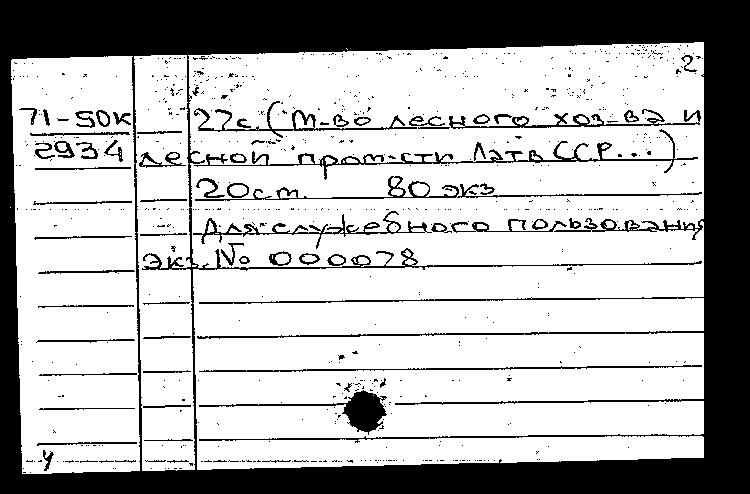 2
71-50к 27с. (М-во лесного хоз-ва и
2934 лесной пром-сти Латв ССР...)
20 cm. 80 экз
Для служебного пользования
экз. № 000078
У